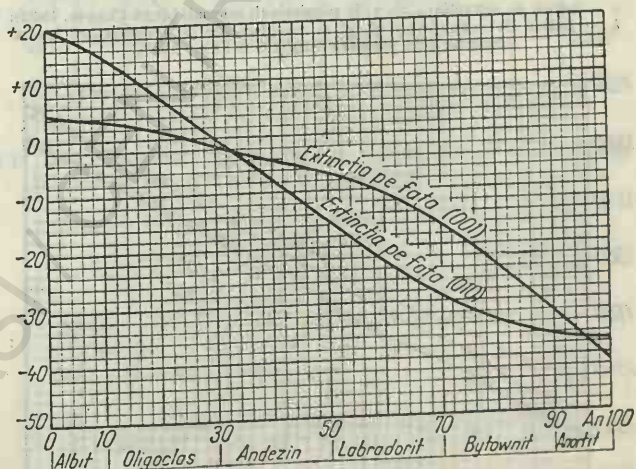 +20
+10
0
-10
-20
-30
-40
-50
Extincția pe fața (001)
Extincția pe fața (010)
0 10 30 50 70 90 An100
Albit Oligoclas Andezin Labradorit Bytownit Anortit